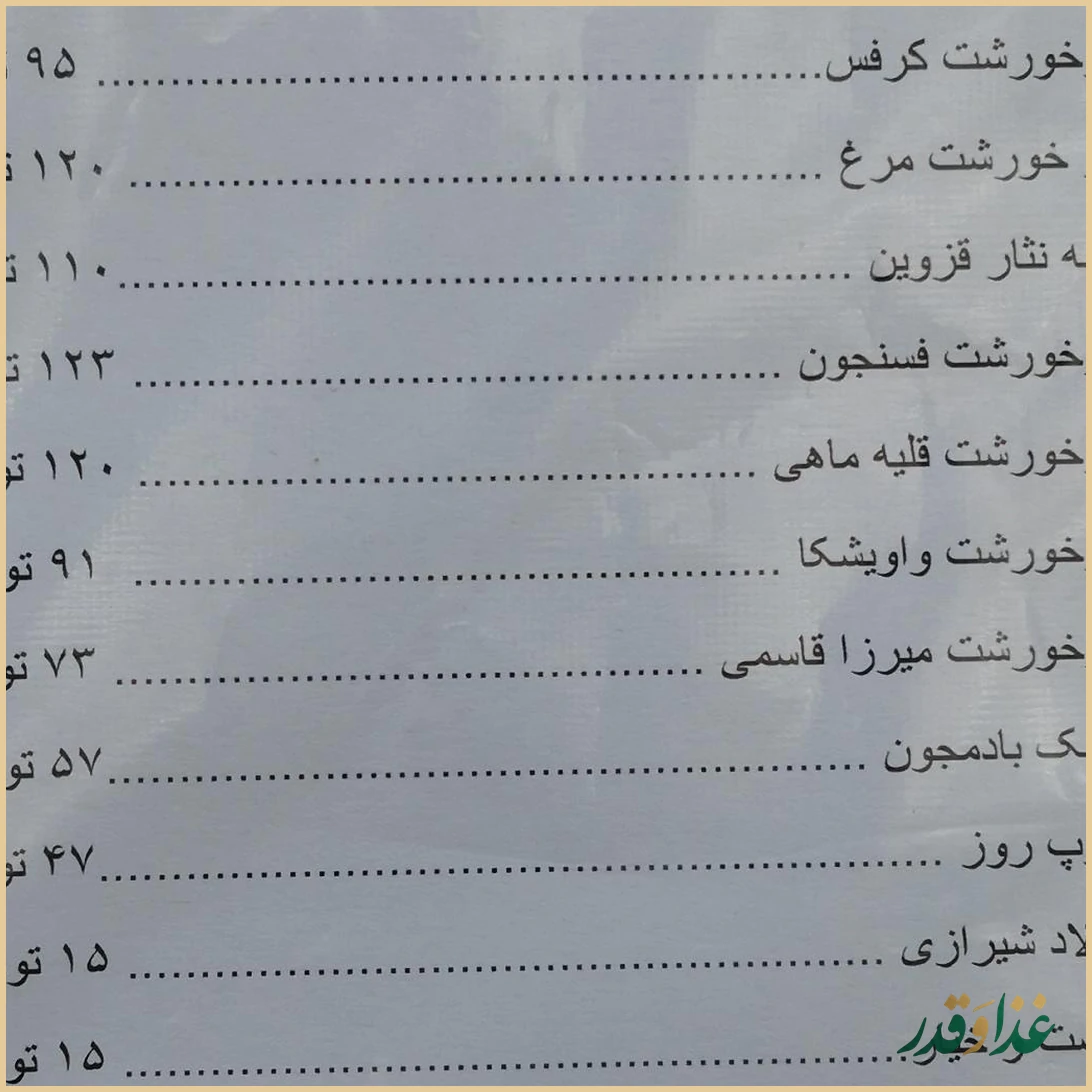 خورشت کرفس........................ ۹۵
خورشت مرغ ........................ ۱۲۰
نثار قزوین ........................ ۱۱۰
خورشت فسنجون ........................ ۱۲۳
خورشت قلیه ماهی ........................ ۱۲۰ تو
خورشت واویشکا ........................ ۹۱ تو
خورشت میرزا قاسمی ........................ ۷۳ تو
بادمجون ........................ ۵۷ تو
روز ........................ ۴۷ تو
شیرازی ........................ ۱۵ تو
........................ ۱۵ تو
غذا و قدر